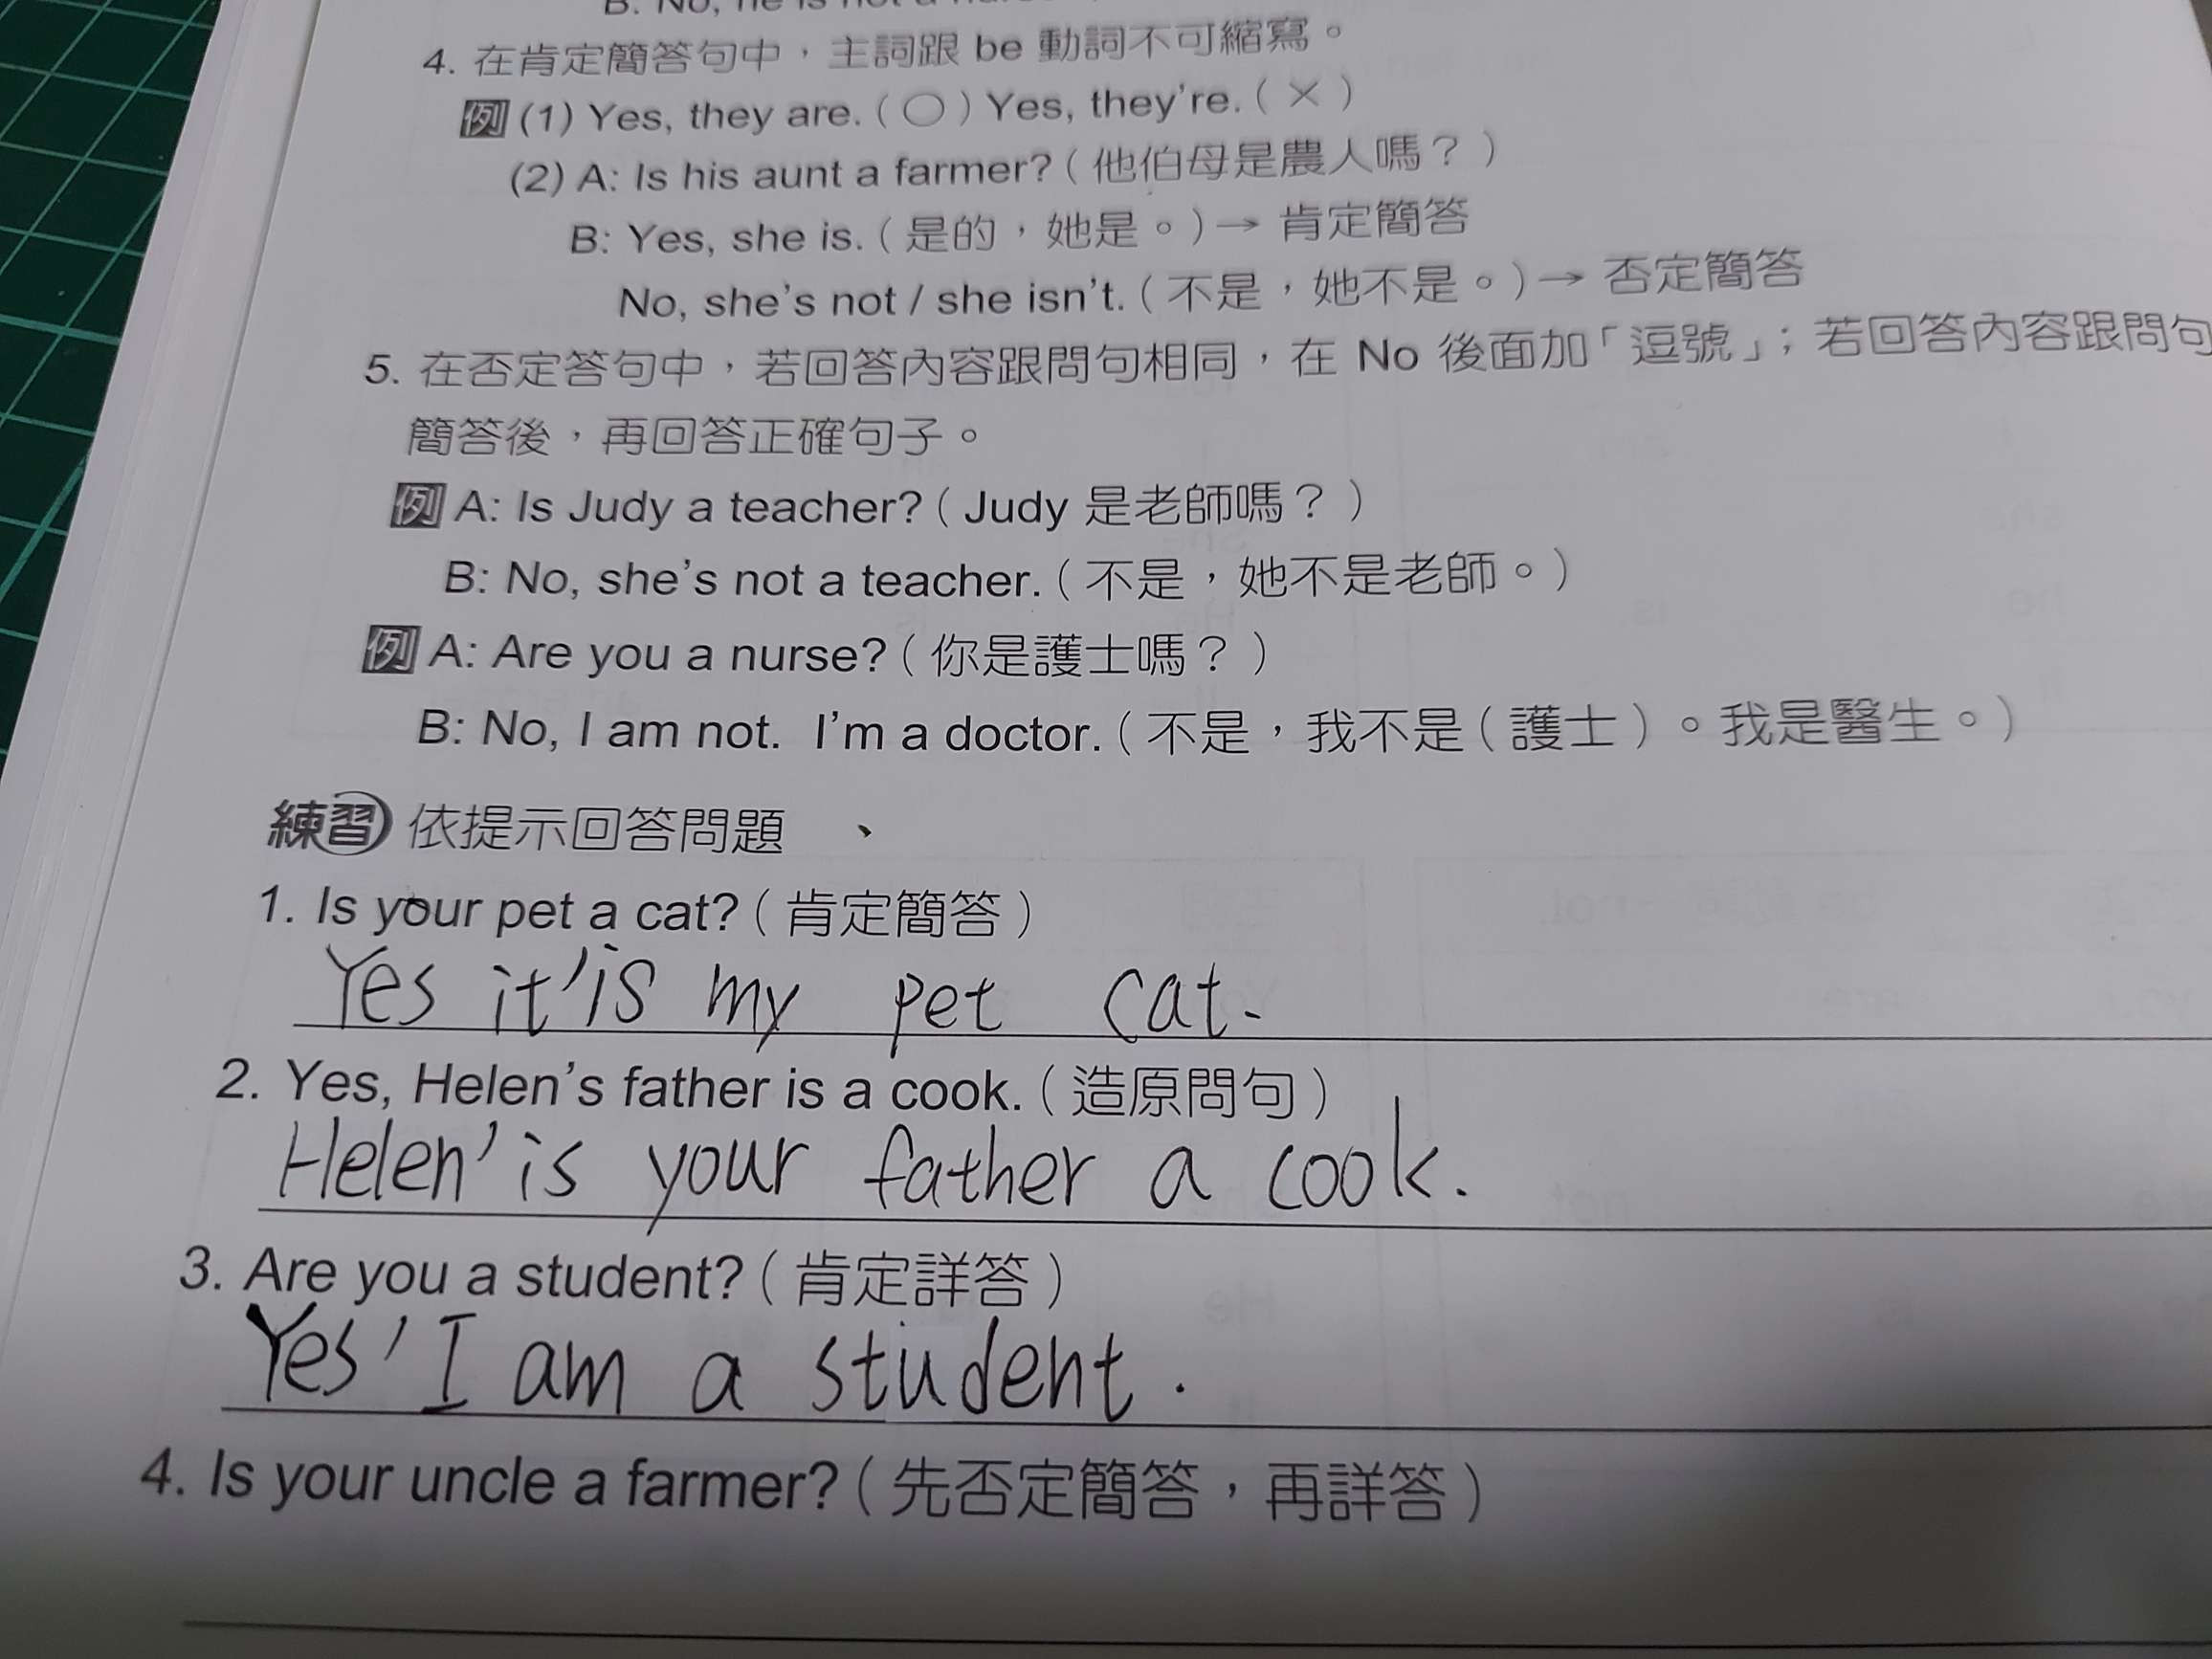 B: No, he is not a nurse.
4. 在肯定簡答句中，主詞跟 be 動詞不可縮寫。
例 (1) Yes, they are.（○）Yes, they're.（×）
(2) A: Is his aunt a farmer?（他伯母是農人嗎？）
B: Yes, she is.（是的，她是。）→ 肯定簡答
No, she's not / she isn't.（不是，她不是。）→ 否定簡答
5. 在否定答句中，若回答內容跟問句相同，在 No 後面加「逗號」；若回答內容跟問句
簡答後，再回答正確句子。
例 A: Is Judy a teacher?（Judy 是老師嗎？）
B: No, she's not a teacher.（不是，她不是老師。）
例 A: Are you a nurse?（你是護士嗎？）
B: No, I am not. I'm a doctor.（不是，我不是（護士）。我是醫生。）
練習 依提示回答問題
1. Is your pet a cat?（肯定簡答）
Yes it'is my pet cat.
2. Yes, Helen's father is a cook.（造原問句）
Helen' is your father a cook.
3. Are you a student?（肯定詳答）
Yes' I am a student.
4. Is your uncle a farmer?（先否定簡答，再詳答）